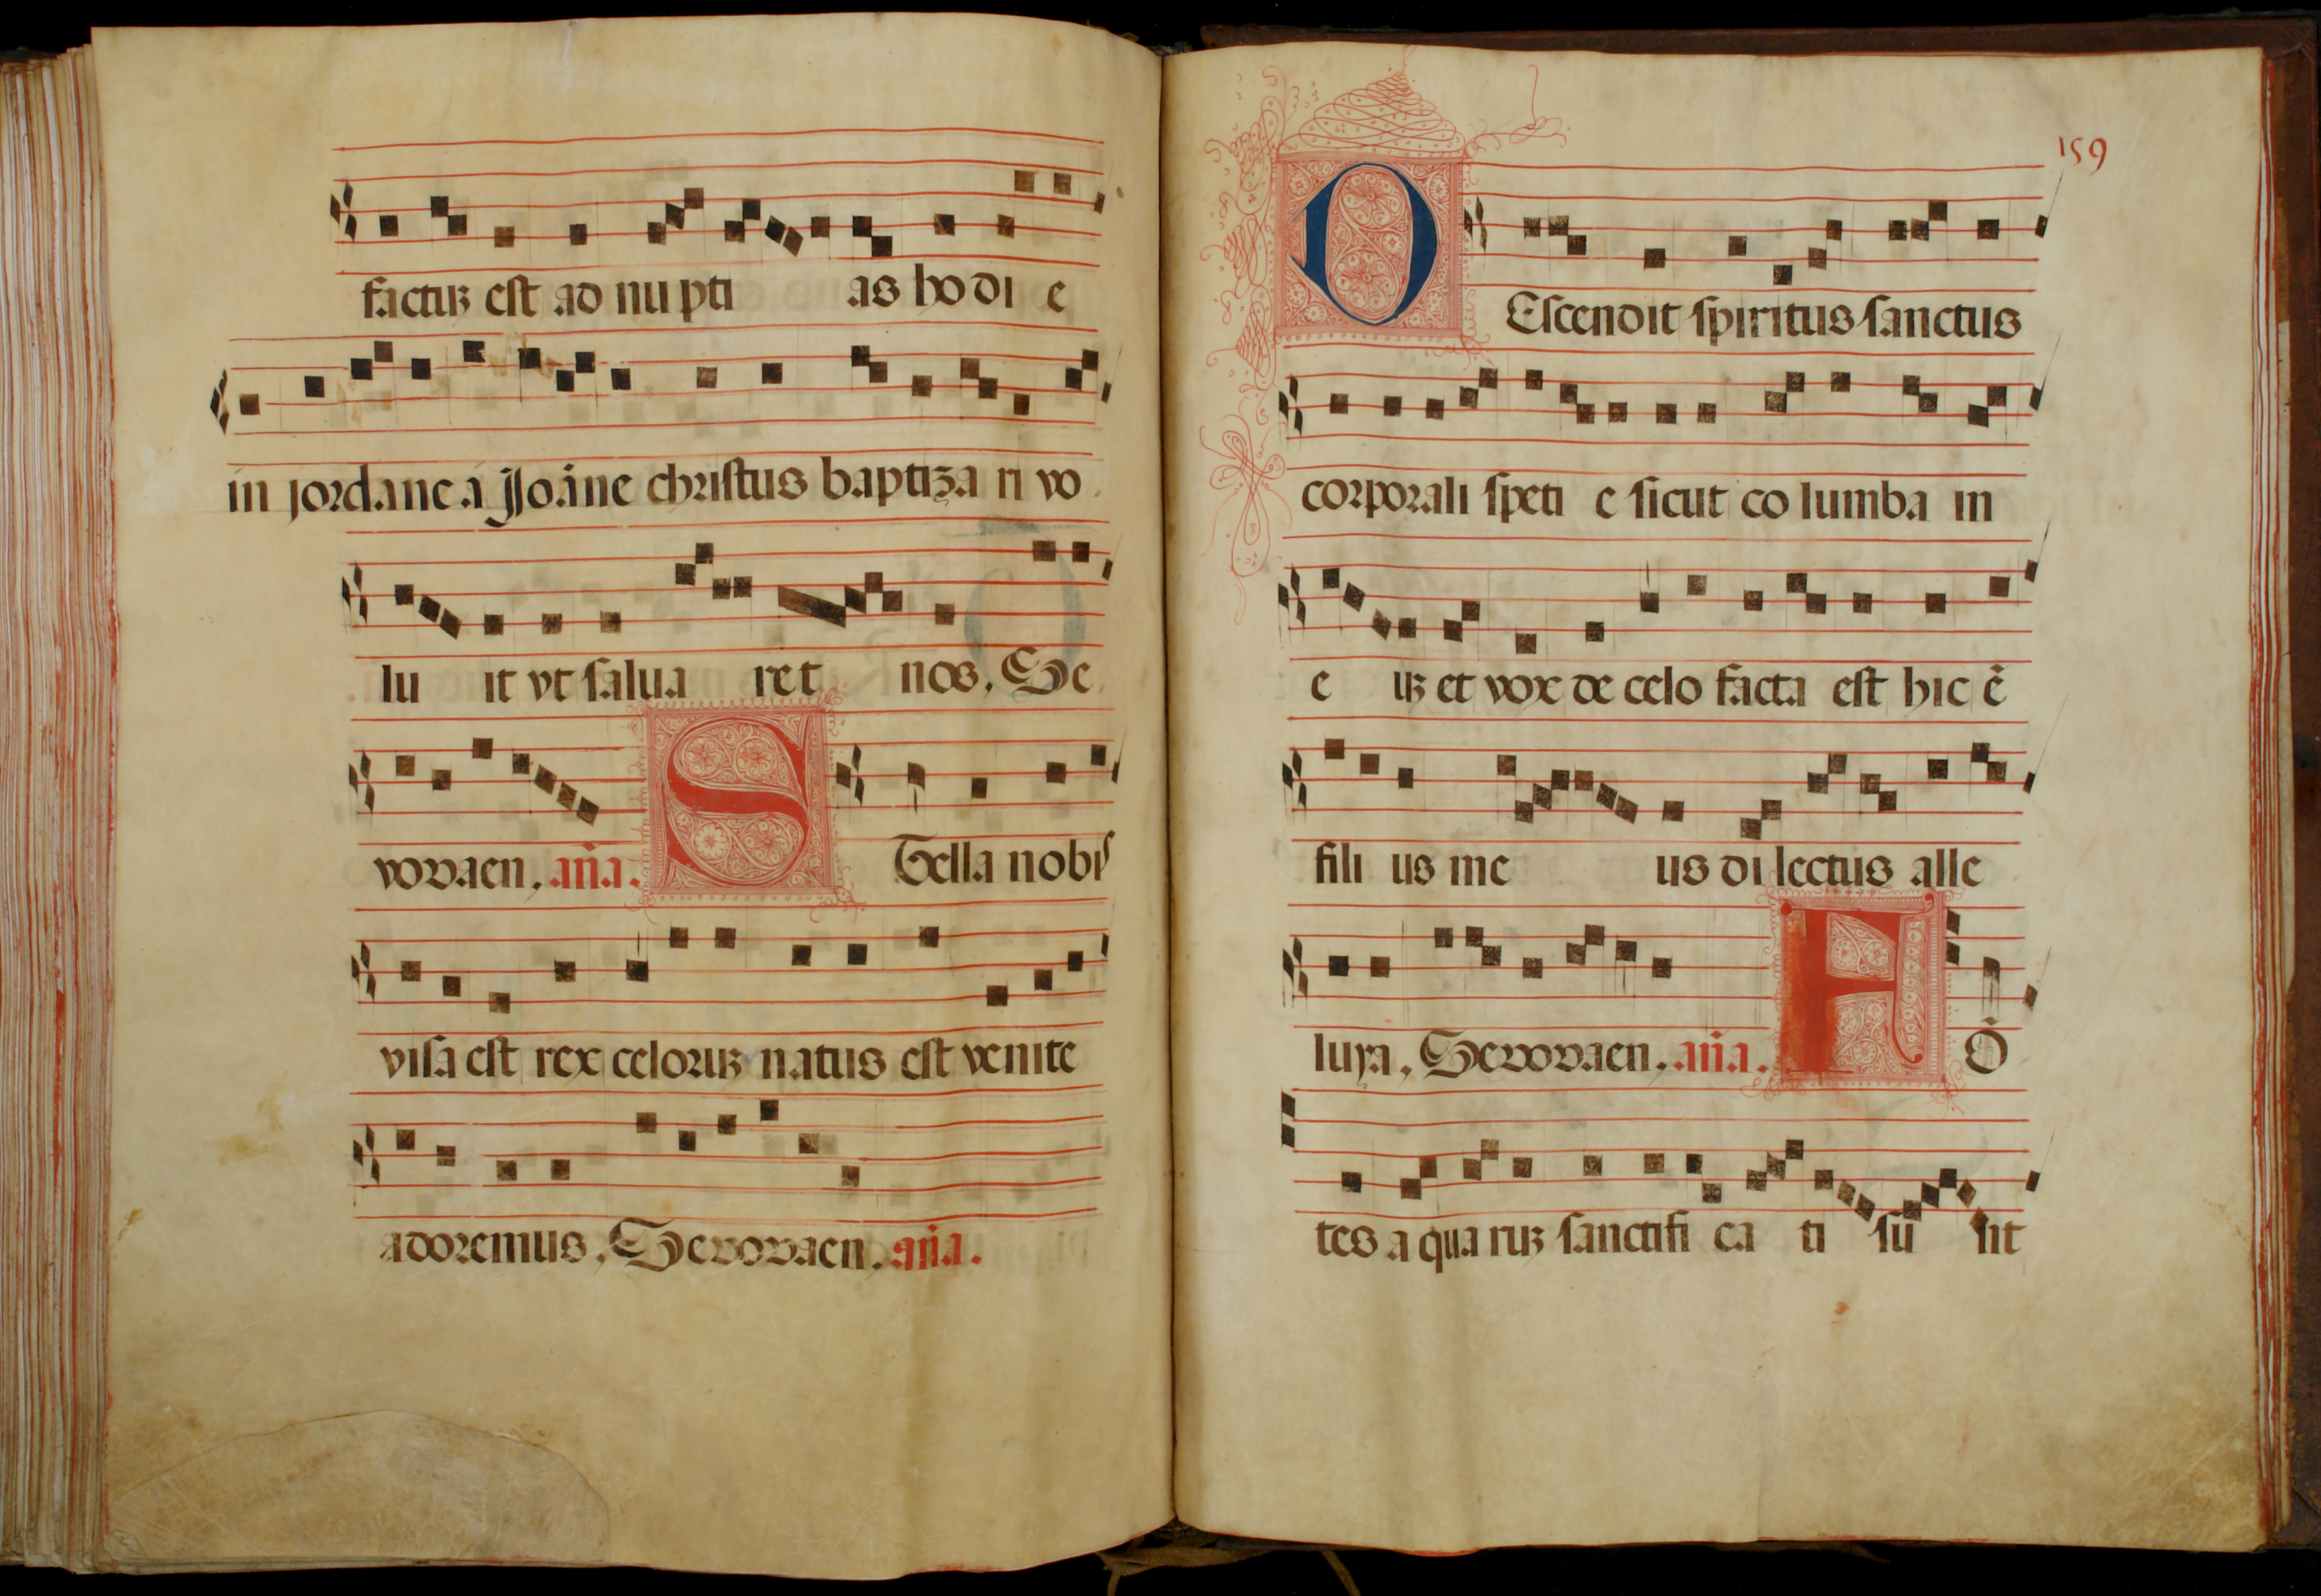 factuꝫ est ad nu pti as ho di e
in jordane a Joāne christus baptiza ri vo
lu it vt salua ret nos. Se
vovaen. an̄a. S Tella nobis
visa est rex celoruꝫ natus est venite
adoremus. Sevovaen. an̄a.
159
D Escendit spiritus sanctus
corporali speti e sicut co lumba in
e uꝫ et vox de celo facta est hic ē
fili us me us di lectus alle
luya. Sevovaen. an̄a. F Ō
tes a qua ruꝫ sanctifi ca ti sū sit